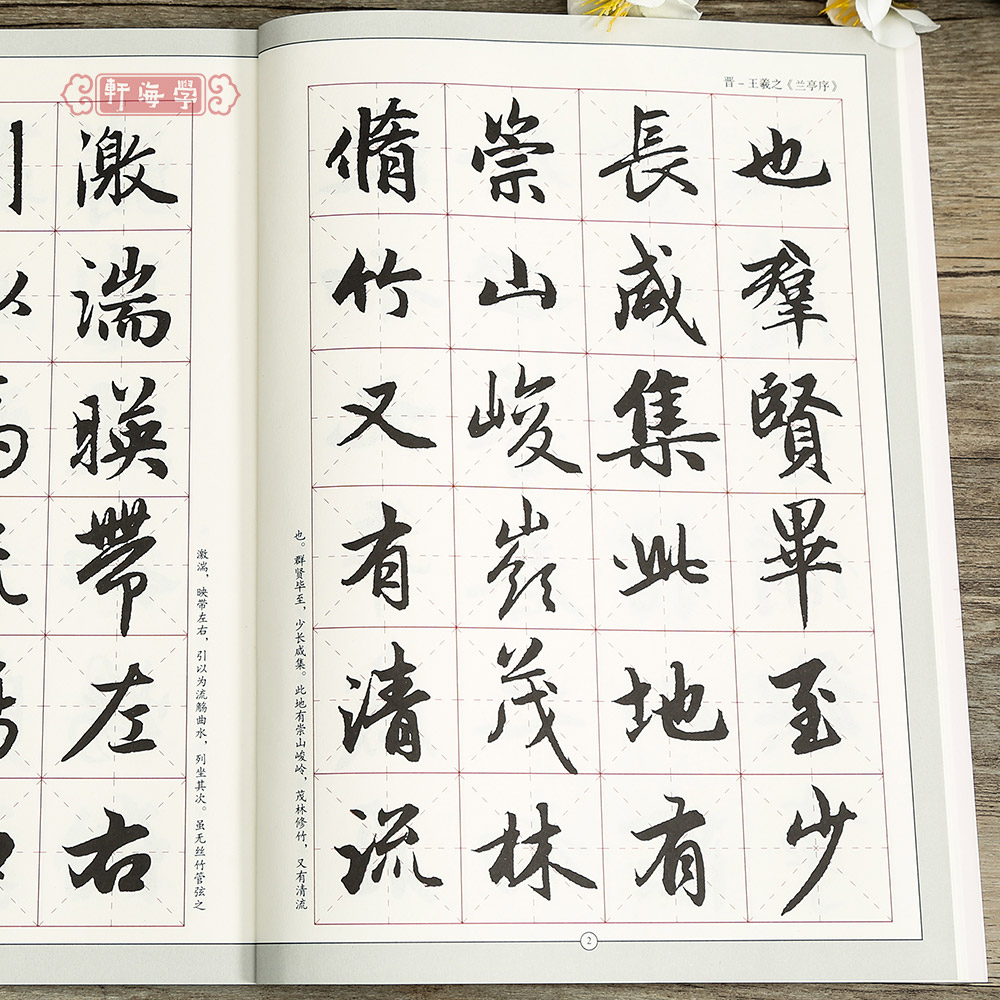 學海軒
晋－王羲之《兰亭序》
也羣賢畢至少
長咸集此地有
崇山峻嶺茂林
脩竹又有清流
也。群贤毕至，少长咸集。此地有崇山峻岭，茂林修竹，又有清流
2
激湍，映带左右，引以为流觞曲水，列坐其次。虽无丝竹管弦之
激湍暎帶左右